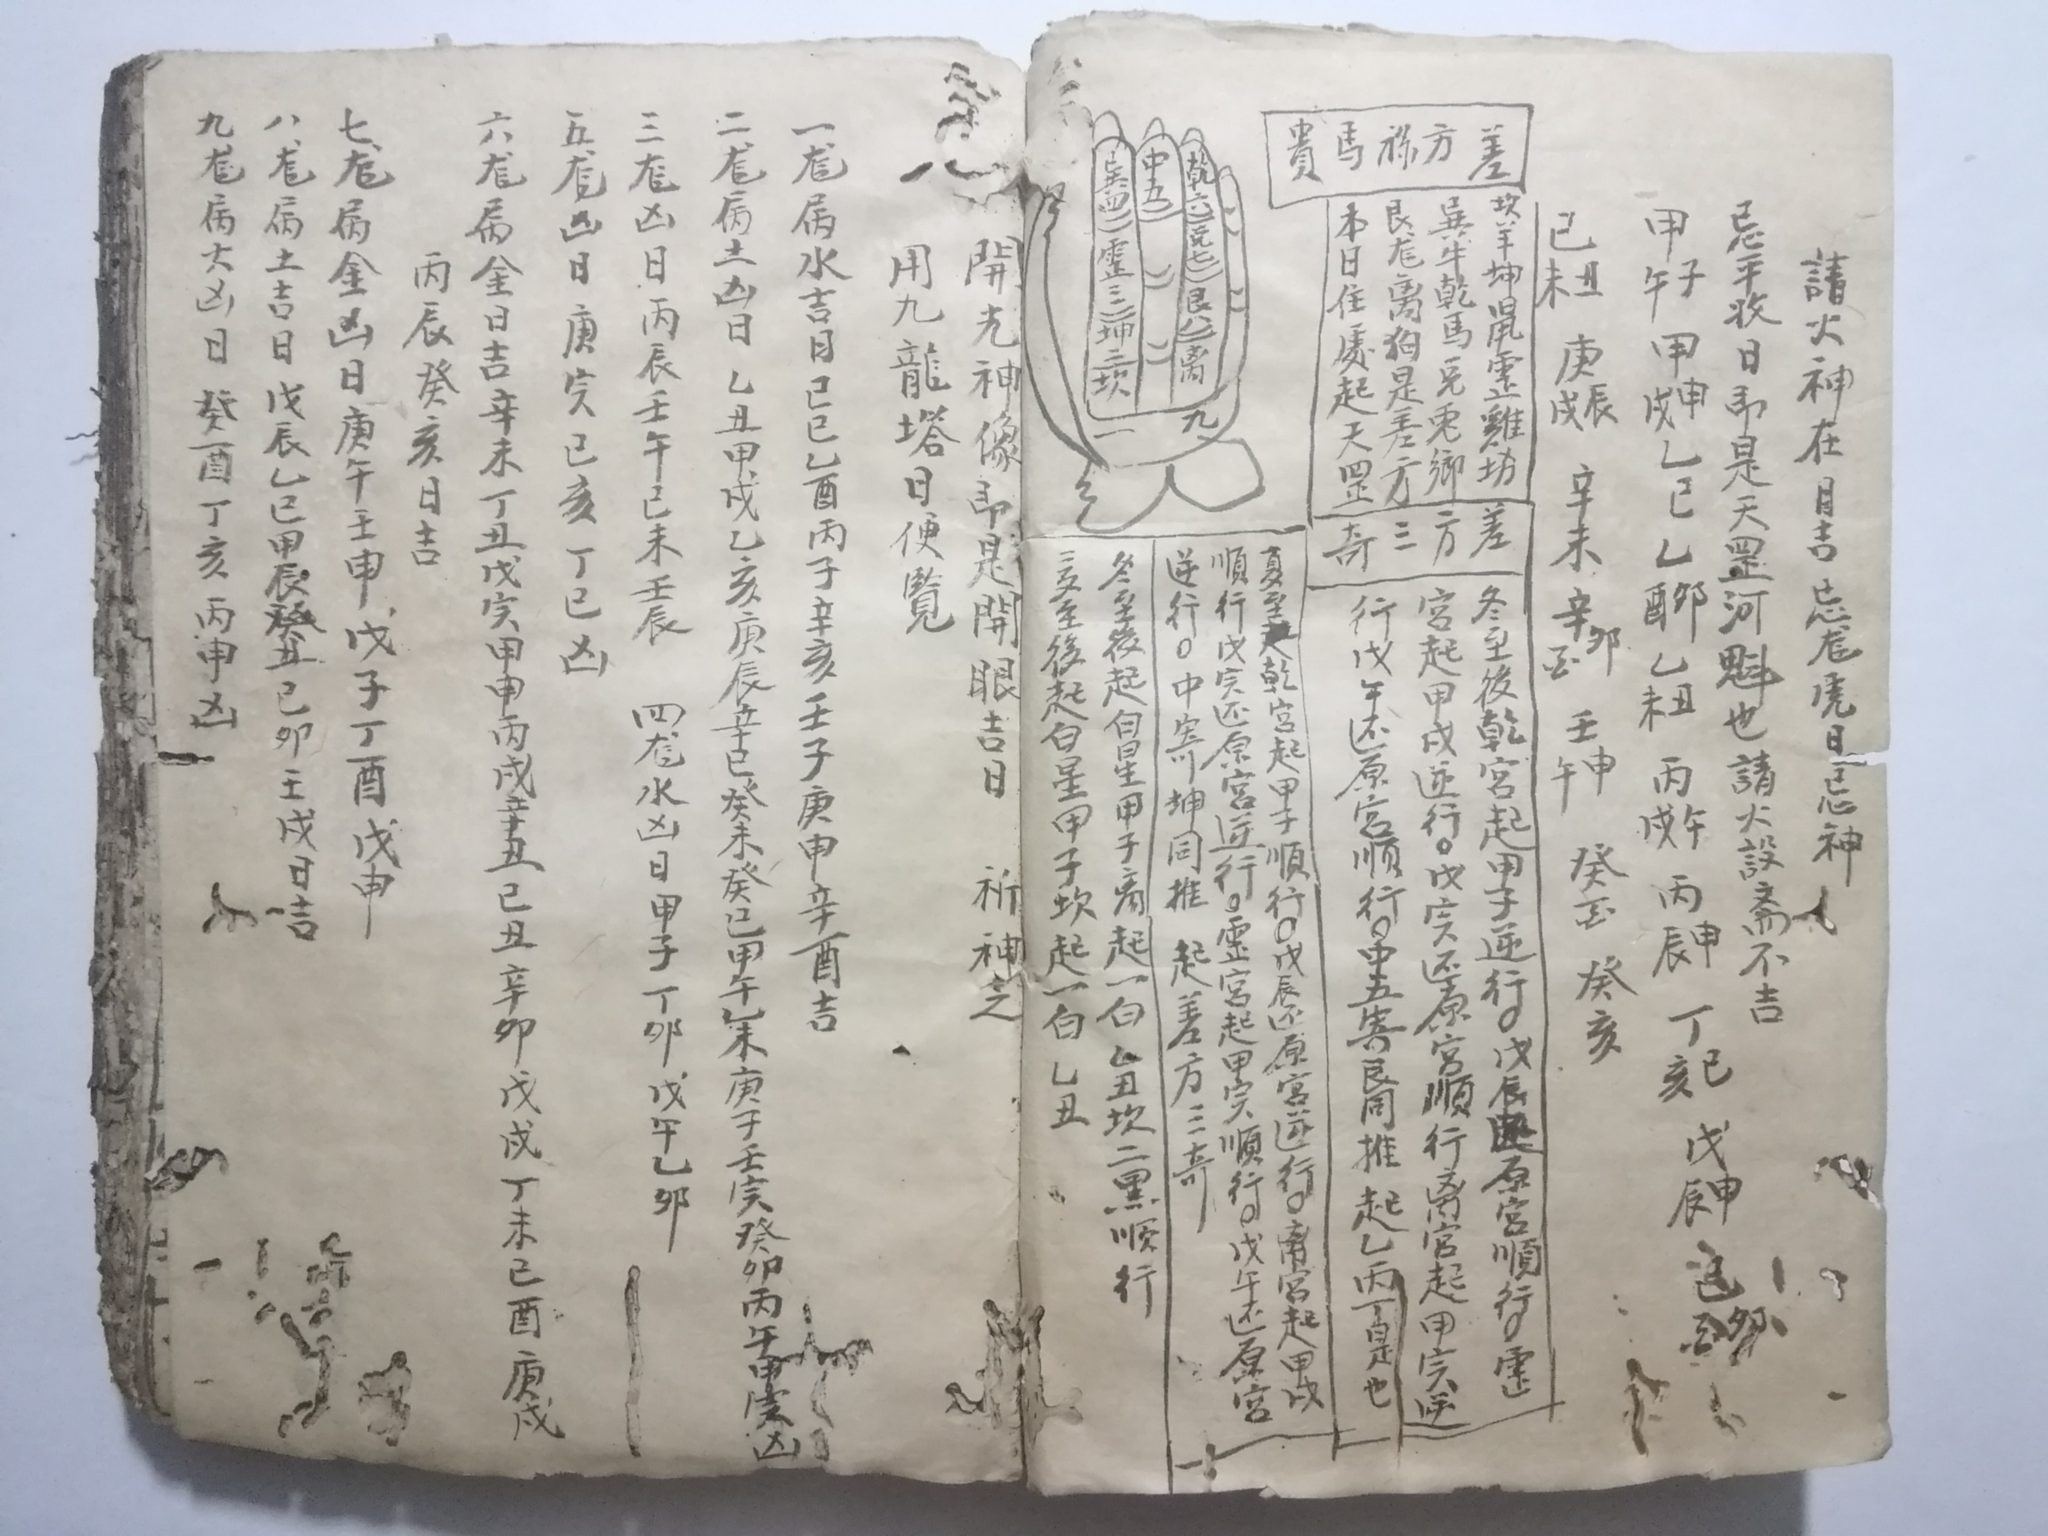 請火神在目吉忌尨虎日忌神
忌平收日即是天罡河魁也請火設斋不吉
甲子午 甲申戌 乙巳 乙卯酉 乙丑未 丙午戌 丙申辰 丁巳亥 戊申辰
己丑未 庚辰戌 辛未 辛卯 壬申午 癸 癸亥
差方祿馬貴
坎羊坤鼠震雞坊
巽牛乾馬兑兎鄉
艮尨离狗是差方
本日住處起天罡
差方三奇
冬至後乾宮起甲子逆行。戊辰原宮順行。震
宮起甲戌逆行。戊寅还原宮順行离宮起甲寅逆
行戊午还原宮順行。中五寄艮同推 起乙丙丁是也
夏至起乾宮起甲子順行。戊辰还原宮逆行。离宮起甲戌
順行戊寅还原宮逆行。震宮起甲寅順行。戊午还原宮
逆行。中寄坤同推 起差方三奇
冬至後起白星甲子离起一白乙丑坎二黑順行
夏至後起白星甲子坎起一白乙丑
乾六 兑七 艮八 离九
中五
巽四 震三 坤二 坎一
開光神像即是開眼吉日 祈神之
用九龍塔日便覧
一尨病水吉日己巳乙酉丙子辛亥壬子庚申辛酉吉
二尨病土凶日乙丑甲戌乙亥庚辰辛巳癸未癸巳甲午乙未庚子壬寅癸卯丙午甲寅凶
三尨凶日丙辰壬午己未壬辰 四尨水凶日甲子丁卯戊午乙卯
五尨凶日庚寅己亥丁巳凶
六尨病金日吉辛未丁丑戊寅甲申丙戌辛丑己丑辛卯戊戌丁未己酉庚戌
丙辰癸亥日吉
七尨病金凶日庚午壬申戊子丁酉戊申
八尨病土吉日戊辰乙巳甲辰癸丑己卯壬戌日吉
九尨病大凶日癸酉丁亥丙申凶